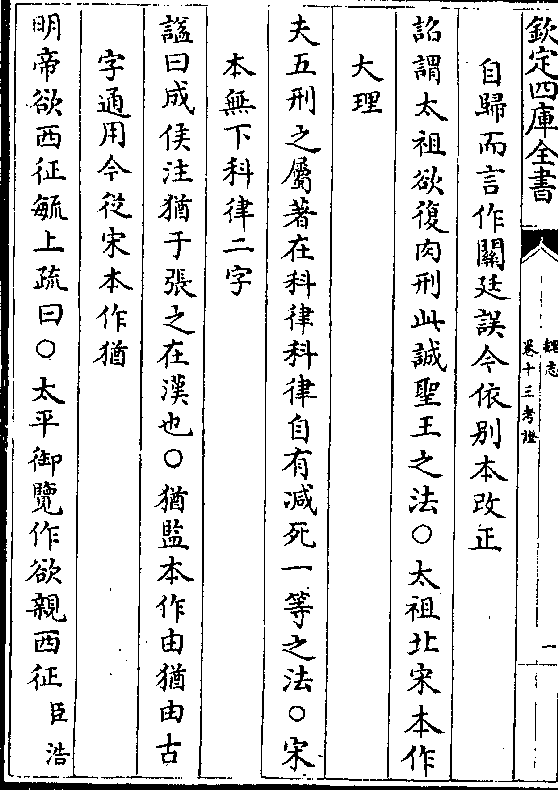 欽定四庫全書
魏志
卷十三考證
一
自歸而言作關廷誤今依別本改正
詔謂太祖欲復肉刑此誠聖王之法○太祖北宋本作
大理
夫五刑之屬著在科律科律自有減死一等之法○宋
本無下科律二字
謚曰成侯注猶于張之在漢也○猶監本作由猶由古
字通用今從宋本作猶
明帝欲西征毓上疏曰○太平御覽作欲親西征臣浩